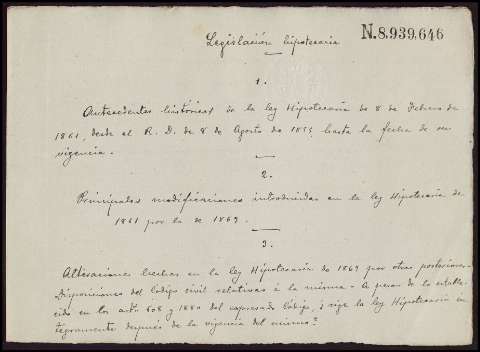 N.8.939.646
Legislación hipotecaria
1.
Antecedentes históricos de la ley Hipotecaria de 8 de Febrero de
1861, desde el R. D. de 8 de Agosto de hasta la fecha de su
vigencia.
2.
Principales modificaciones introducidas en la ley Hipotecaria de
1861 por la de 1869.
3.
Alteraciones hechas en la ley Hipotecaria de 1869 por otras posteriores.
Disposiciones del Código civil relativas á la misma - A pesar de lo estable-
cido en los artos 608 y 1880 del expresado Código, ¿rige la ley Hipotecaria ín
tegramente después de la vigencia del mismo?